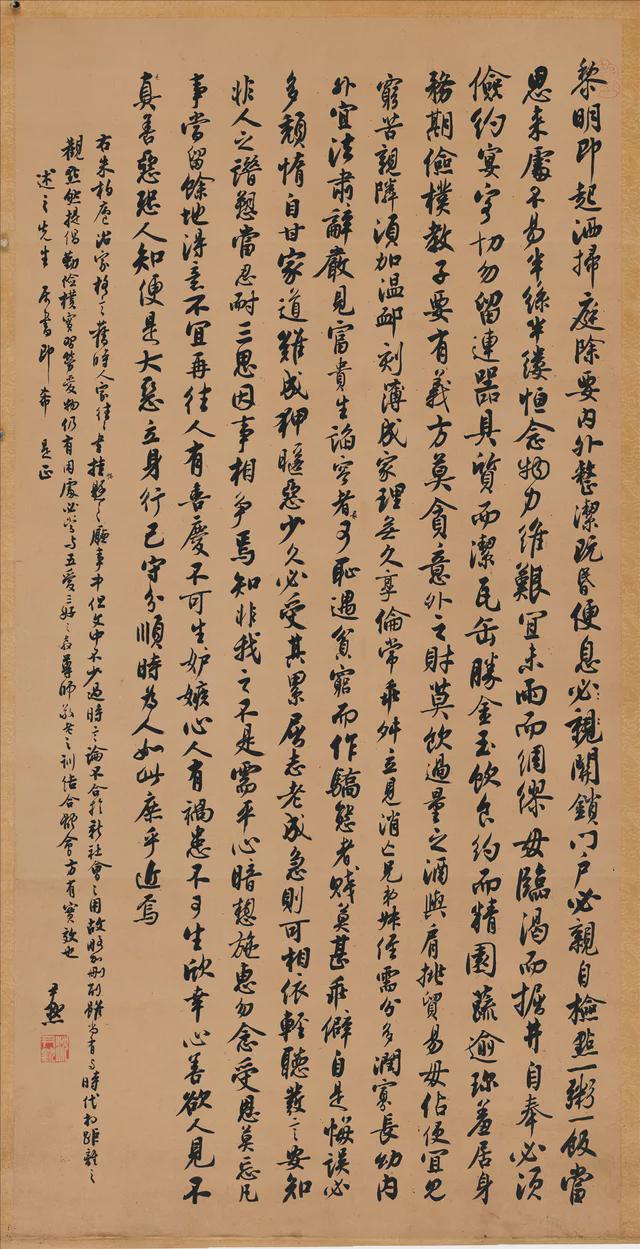 黎明即起洒掃庭除要內外整潔既昏便息必親關鎖門戶必親自檢點一粥一飯當
思來處不易半絲半縷恒念物力維艱宜未雨而綢繆毋臨渴而掘井自奉必須
儉約宴客切勿留連器具質而潔瓦缶勝金玉飲食約而精園蔬逾珍羞居身
務期儉樸教子要有義方莫貪意外之財莫飲過量之酒與肩挑貿易毋佔便宜見
窮苦親隣須加溫卹刻薄成家理無久享倫常乖舛立見消亡兄弟侄需分多潤寡長幼內
外宜法肅辭嚴見富貴生諂容者可恥遇貧窮而作驕態者賤莫甚乖僻自是悔誤必
多頹惰自甘家道難成狎暱惡少久必受其累屈志老成急則可相依輕聽發言安知
非人之譖愬當忍耐三思因事相爭焉知非我之不是需平心暗想施惠勿念受恩莫忘凡
事當留餘地得意不宜再往人有喜慶不可生妒嫉心人有禍患不可生欣幸心善欲人見不
真善惡恐人知便是大惡立身行己守分順時為人如此庶乎近焉
右朱柏廬治家格言舊時人家往往書挂懸之廳事中但文中不少過時之論不合於新社會之用故略為刪削雖尚有與時代相距離之
觀點然提倡勤儉樸實習勞愛物仍有用處必當與五愛三好之教尊師敬老之訓結合領會方有實效也
述之先生 屬書即希 是正
尹默